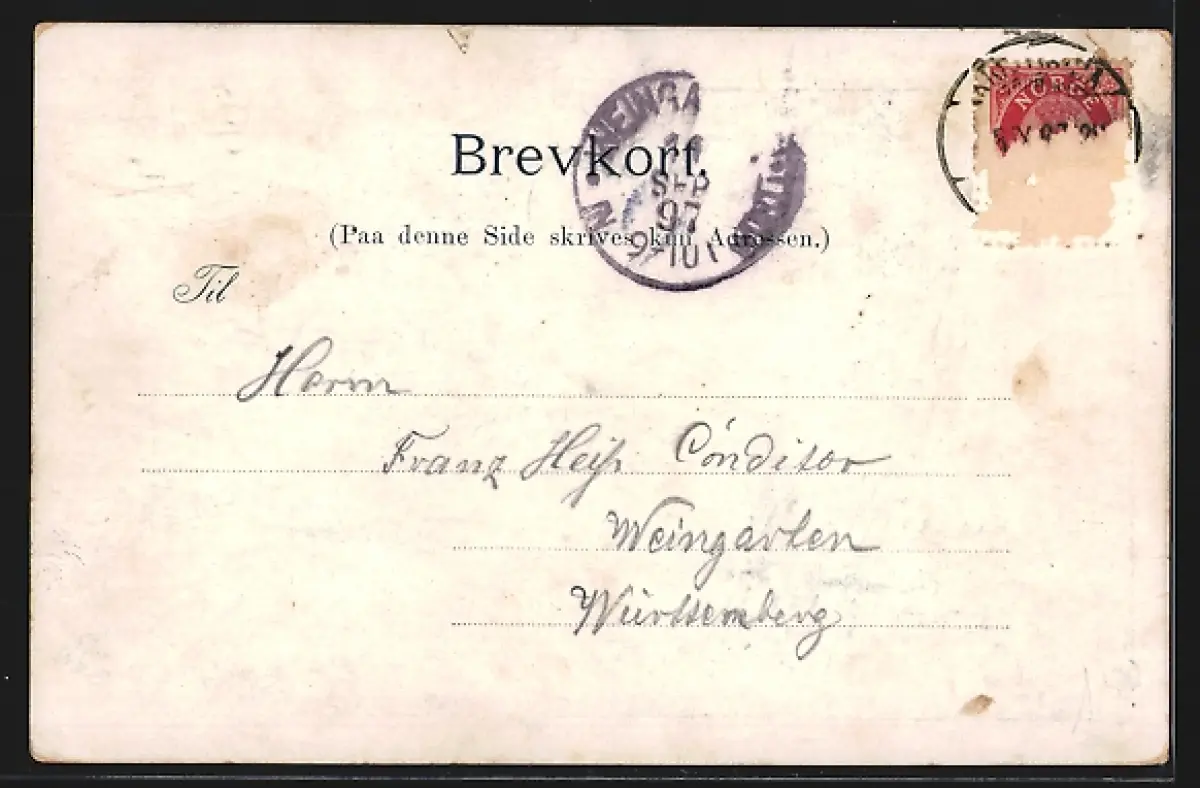 NORGE
Brevkort.
WEINGA
SEP
97
9-10
(Paa denne Side skrives kun Adressen.)
Til
Herrn
Franz Heiß Conditor
Weingarten
Württemberg